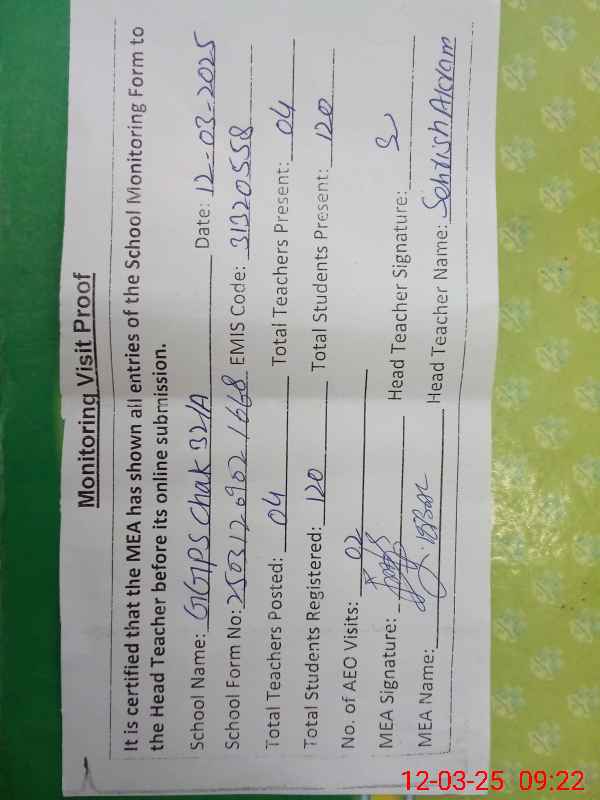 Monitoring Visit Proof
It is certified that the MEA has shown all entries of the School Monitoring Form to
the Head Teacher before its online submission.
School Name: GGPS Chak 32/A Date: 12-03-2025
School Form No: 250312090216 68 EMIS Code: 31320558
Total Teachers Posted: 04 Total Teachers Present: 04
Total Students Registered: 120 Total Students Present: 120
No. of AEO Visits: 02
MEA Signature: Head Teacher Signature:
MEA Name: Head Teacher Name: Sehrish Akram
12-03-25 09:22